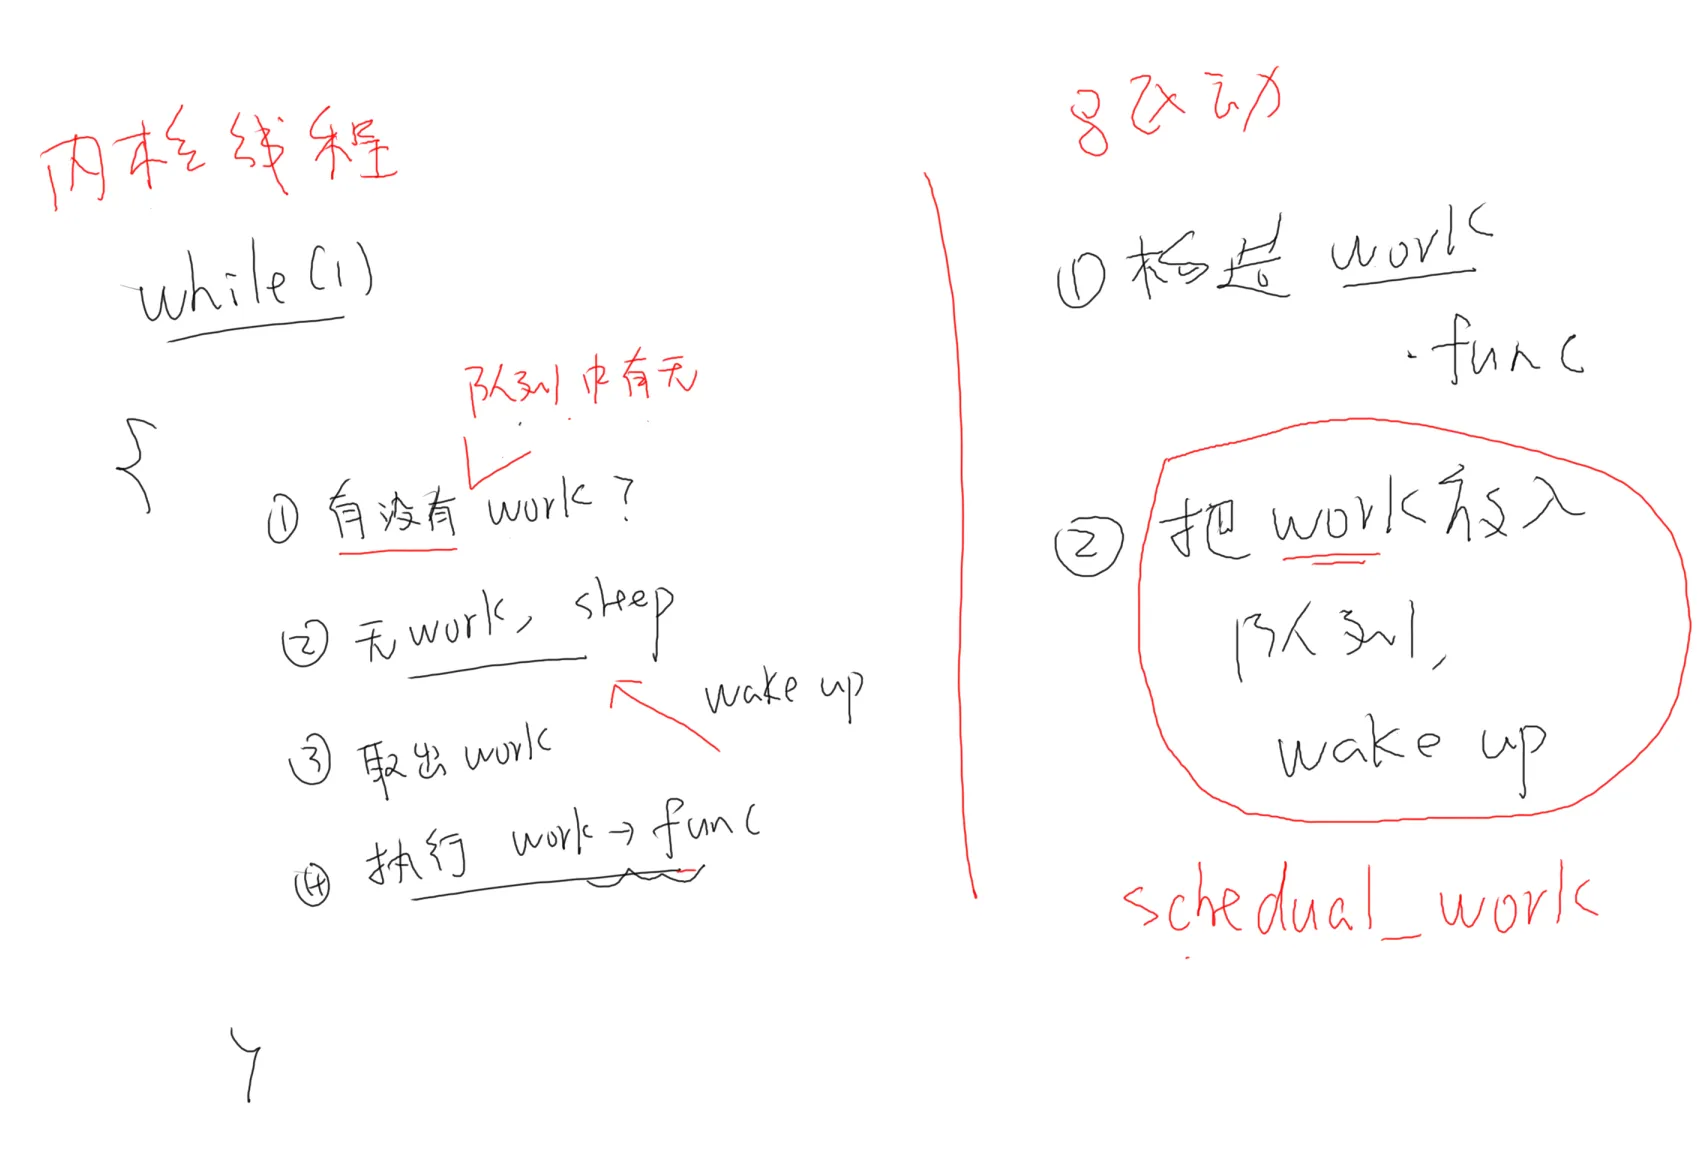 内核线程
while(1)
{
队列中有无
① 有没有 work?
② 无work, sleep
wake up
③ 取出work
④ 执行 work→func
}
驱动
① 构造 work
.func
② 把work放入
队列,
wake up
schedual_work